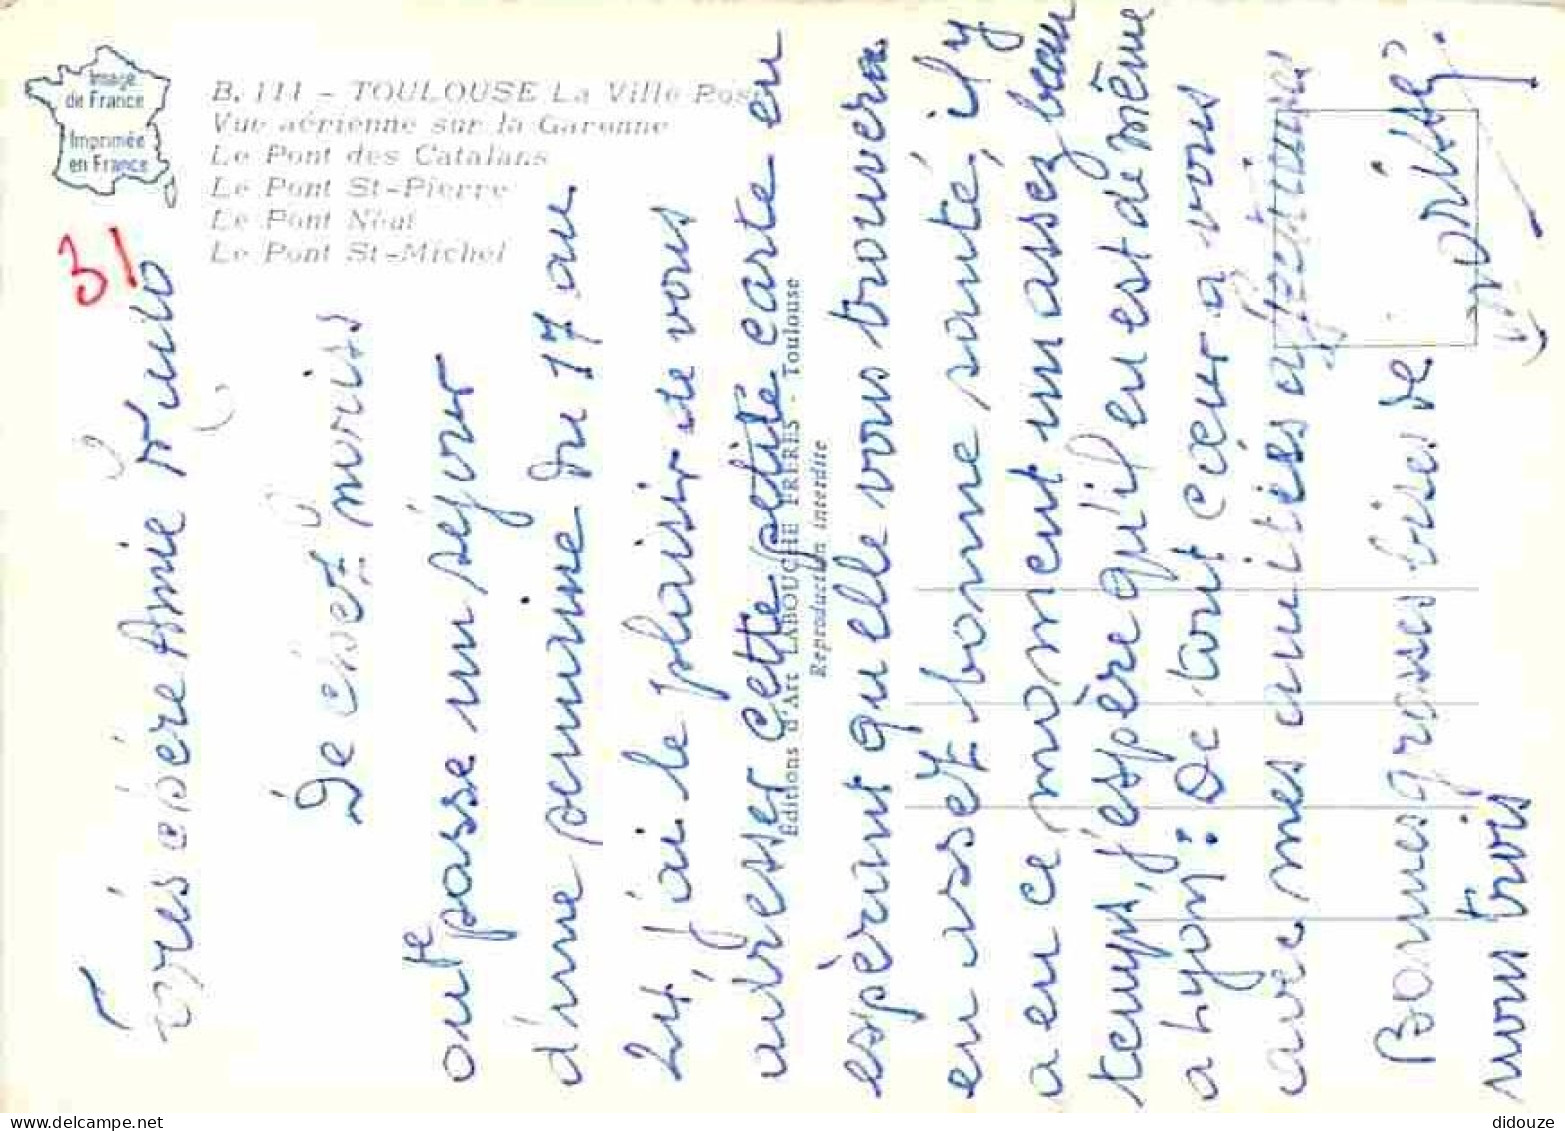 Image
de France
Imprimée
en France
B. 111 - TOULOUSE La Ville Rose
Vue aérienne sur la Garonne
Le Pont des Catalans
Le Pont St-Pierre
Le Pont Neuf
Le Pont St-Michel
31
Éditions d'Art LABOUCHE FRÈRES - Toulouse
Reproduction interdite
très chère Amie
De
passe un séjour
d'une semaine du 17 au
24, j'ai le plaisir de vous
adresser cette petite carte en
espérant qu elle vous trouvera
en bonne santé, il y
a en ce moment un assez beau
temps, j'espère qu'il en est de même
a Lyon: De tout cœur a vous
avec mes amitiés
Bonnes grosses bises de
nous trois
didouze